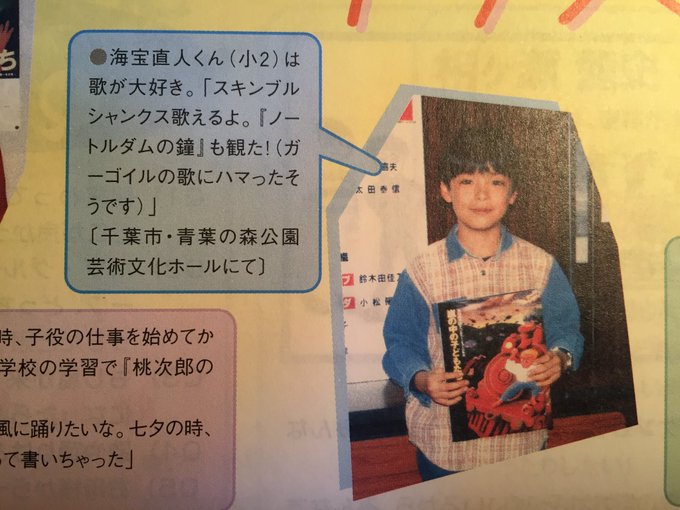 ●海宝直人くん(小2)は
歌が大好き。「スキンブル
シャンクス歌えるよ。『ノー
トルダムの鐘』も観た!(ガ
ーゴイルの歌にハマったそ
うです)」
〔千葉市・青葉の森公園
芸術文化ホールにて〕
太田泰信
鈴木田佳
小松
時、子役の仕事を始めてか
学校の学習で『桃次郎の
風に踊りたいな。七夕の時、
て書いちゃった」